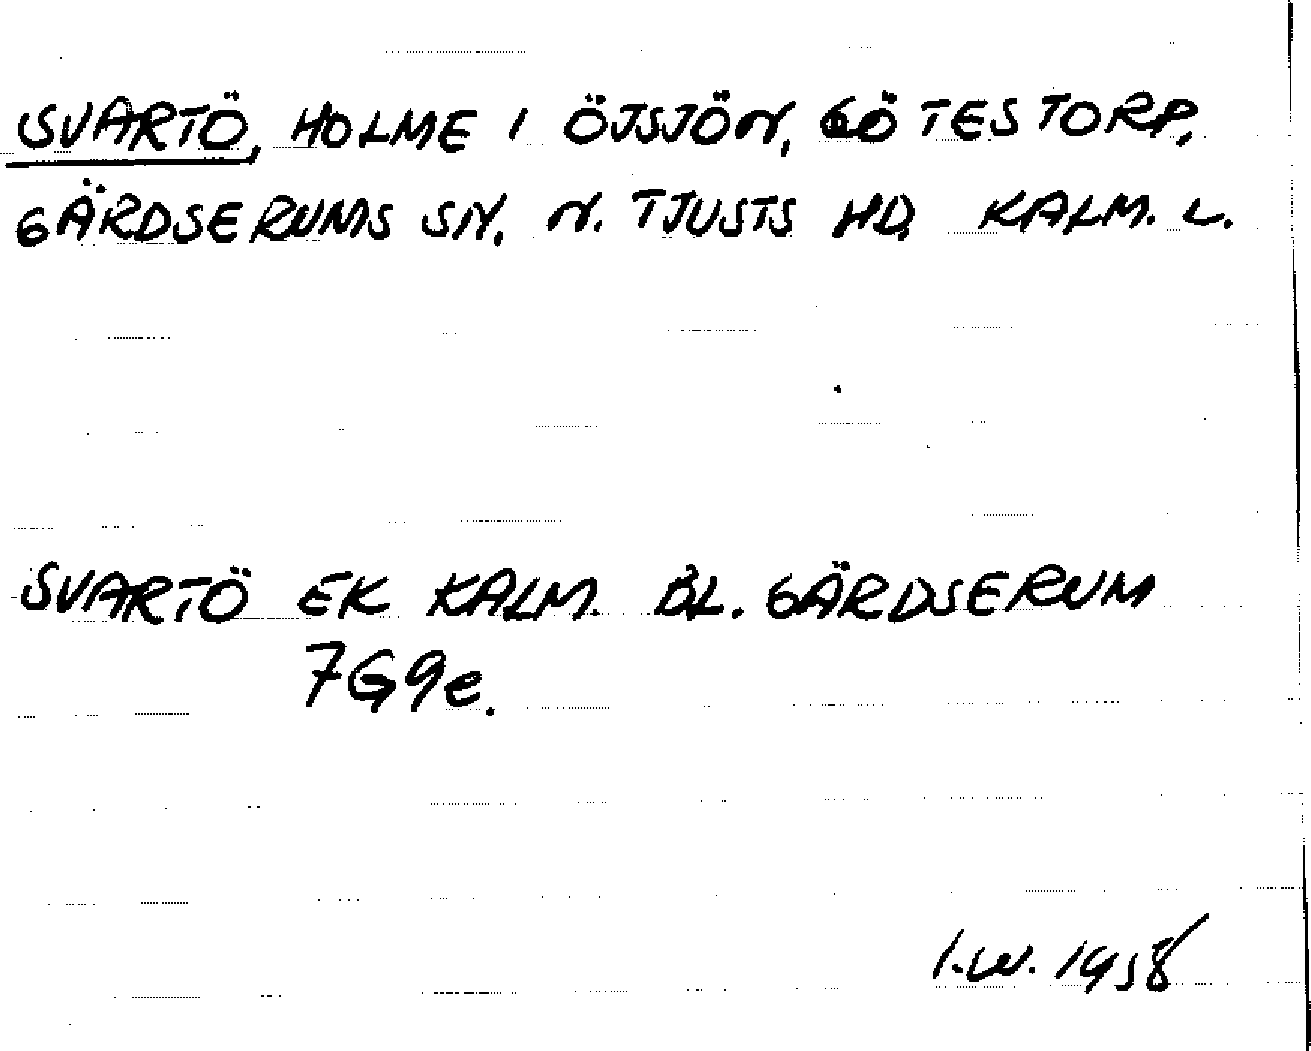 SVARTÖ, HOLME I ÖJSJÖN, GÖTESTORP,
GÄRDSERUMS SN. N. TJUSTS HD KALM. L.
SVARTÖ EK KALM. BL. GÄRDSERUM
7G9e.
I.W. 1958